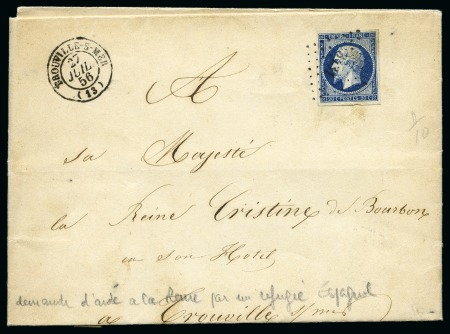 TROUVILLE-S-MER
27
JUIL.
56
(13)
20 C POSTES 20 C
A
sa Majesté
la Reine Cristine de Bourbon
en son Hotel
demande d'aide a la Reine par un refugié Espagnol
a Trouville s/mer